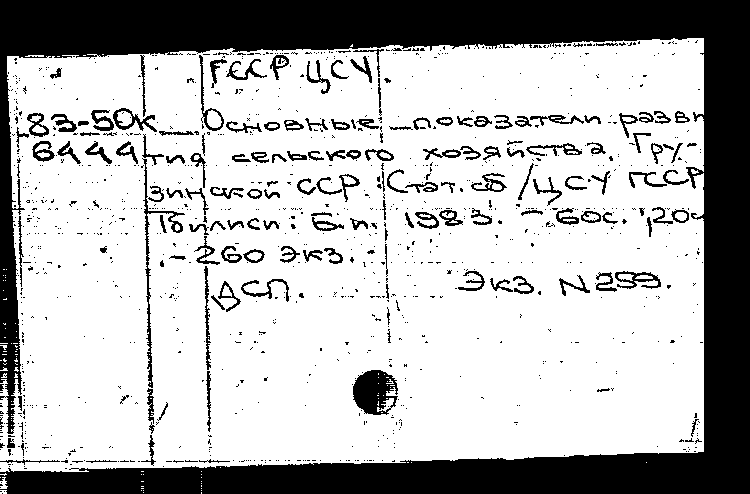 ГССР ЦСУ.
83-50К Основные показатели разви
6444 тия сельского хозяйства Гру-
зинской ССР: Стат. сб / ЦСУ ГССР
Тбилиси: Б.и. 1983. - 60с.; 20с
- 260 экз.
ДСП. Экз. N 259.